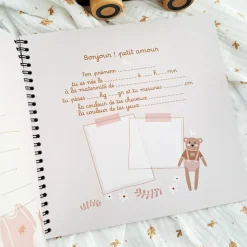 Bonjour ! petit amour
Ton prénom
tu es née le à h min
à la maternité de
tu pèses kg gr et tu mesures cm
la couleur de tes cheveux
la couleur de tes yeux